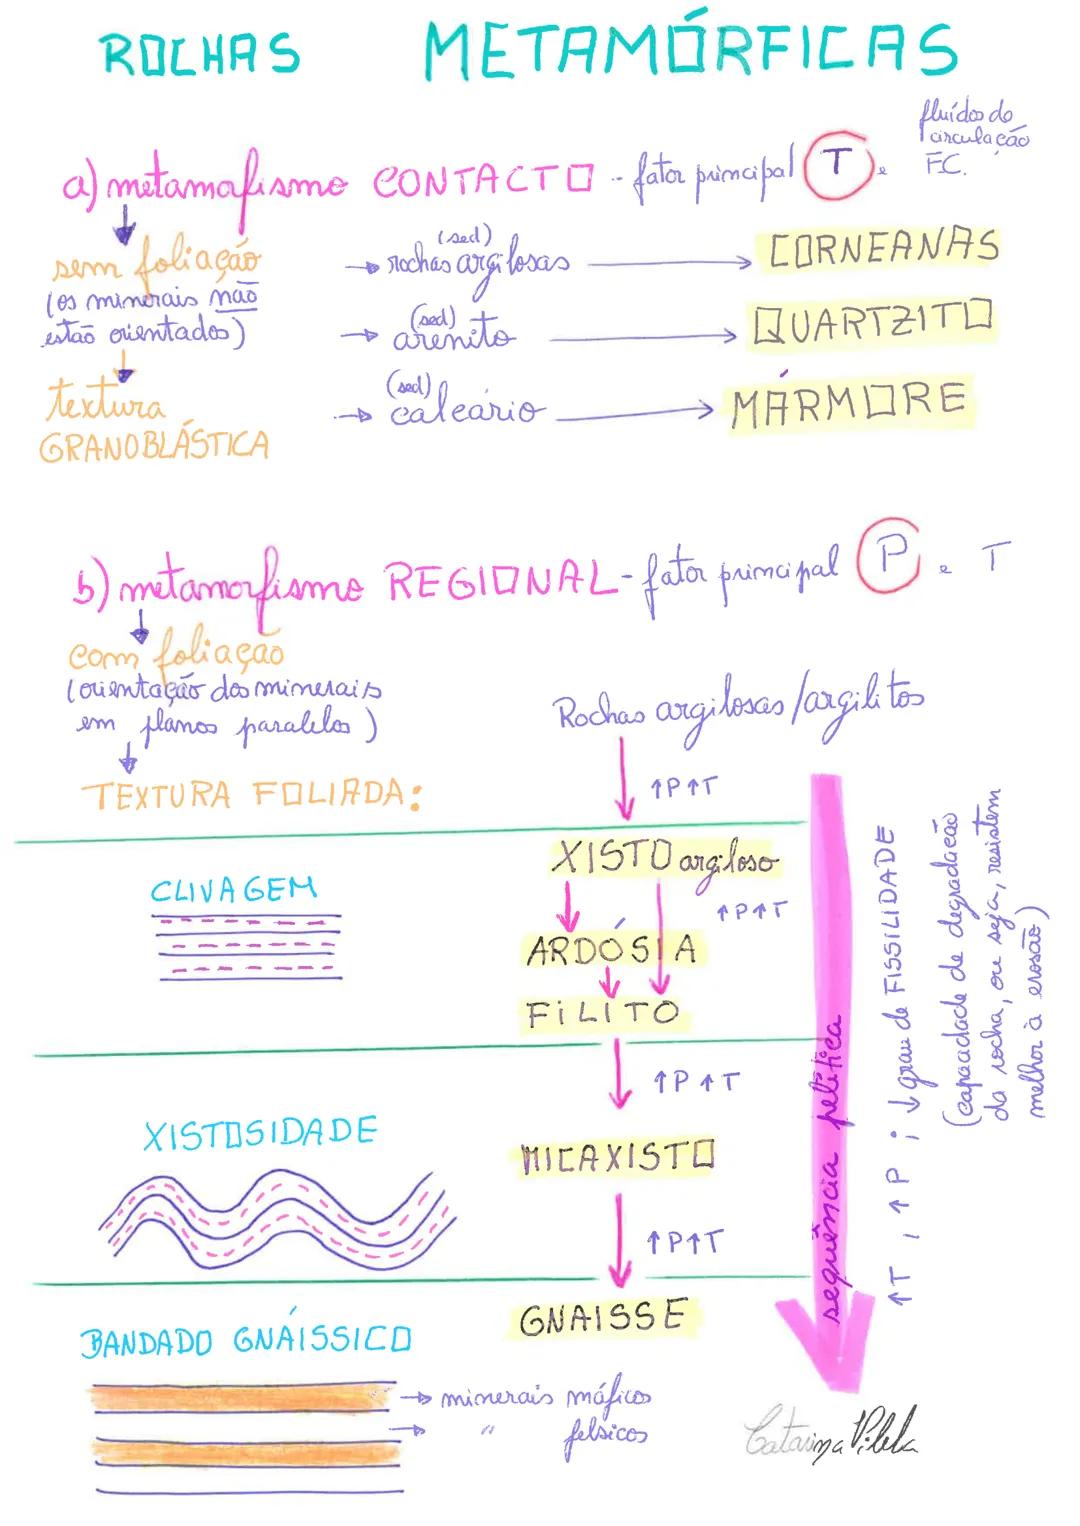 ROCHAS METAMÓRFICAS
a) metamorfismo CONTACTO - fator principal T e fluídos de
circulação
F.C.
sem foliação
(os minerais não
estão orientados)
textura
GRANOBLÁSTICA
(sed)
rochas argilosas → CORNEANAS
(sed)
arenito → QUARTZITO
(sed)
calcário → MÁRMORE
b) metamorfismo REGIONAL - fator principal P e T
com foliação
(orientação dos minerais
em planos paralelos)
TEXTURA FOLIADA:
Rochas argilosas/argilitos
↑P↑T
XISTO argiloso
CLIVAGEM
↑P↑T
ARDÓSIA
FILITO
↑P↑T
XISTOSIDADE
MICAXISTO
↑P↑T
GNAISSE
BANDADO GNÁISSICO
→ minerais máficos
→ " felsicos
sequência pelítica
↑T , ↑P ; ↓ grau de FISSILIDADE
(capacidade de degradação
da rocha, ou seja, resistem
melhor à erosão)
Catarina Pilela